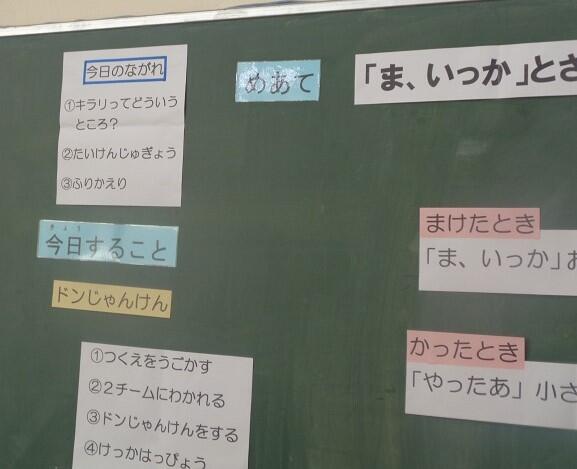 今日のながれ
①キラリってどういう
ところ？
②たいけんじゅぎょう
③ふりかえり
きょう
今日すること
ドンじゃんけん
①つくえをうごかす
②2チームにわかれる
③ドンじゃんけんをする
④けっかはっぴょう
めあて
「ま、いっか」とさ
まけたとき
「ま、いっか」お
かったとき
「やったあ」小さ